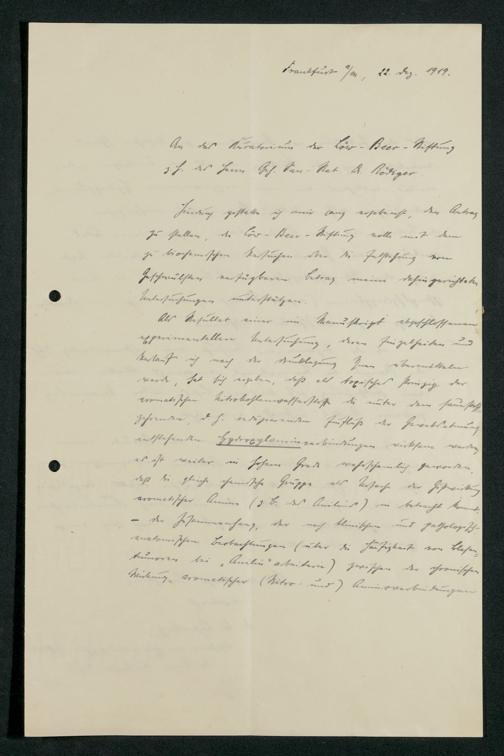 Frankfurt a/M, 22. Dez. 1919.
An das Kuratorium der Löw-Beer-Stiftung
z. H. des Herrn Geh. San.-Rat Dr. Rödiger
Hierdurch gestatte ich mir ganz ergebenst, den Antrag
zu stellen, die Löw-Beer-Stiftung wolle mit dem
zu biochemischen Versuchen über die Entstehung von
Geschwülsten verfügbaren Betrag meine dahingerichteten
Untersuchungen unterstützen.
Als Resultat einer im Manuskript abgeschlossenen
experimentellen Untersuchung, deren Einzelheiten und
Verlauf ich nach der Drucklegung Ihnen übermitteln
werde, hat sich ergeben, daß als toxisches Prinzip der
aromatischen Nitrokohlenwasserstoffe die unter dem
d. h. reduzierenden Einfluß der Gewebsatmung
entstehenden Hydroxylaminverbindungen wirksam werden,
es ist weiter in hohem Grade wahrscheinlich geworden,
daß die gleiche chemische Gruppe als Ursache der Giftwirkung
aromatischer Amine (z. B. des Anilins) in Betracht kommt
– der Zusammenhang, der nach klinischen und pathologisch-
anatomischen Beobachtungen (über die Häufigkeit von Blasen-
tumoren bei „Anilin"arbeitern) zwischen der chronischen
Wirkung aromatischer (Nitro- und) Aminoverbindungen